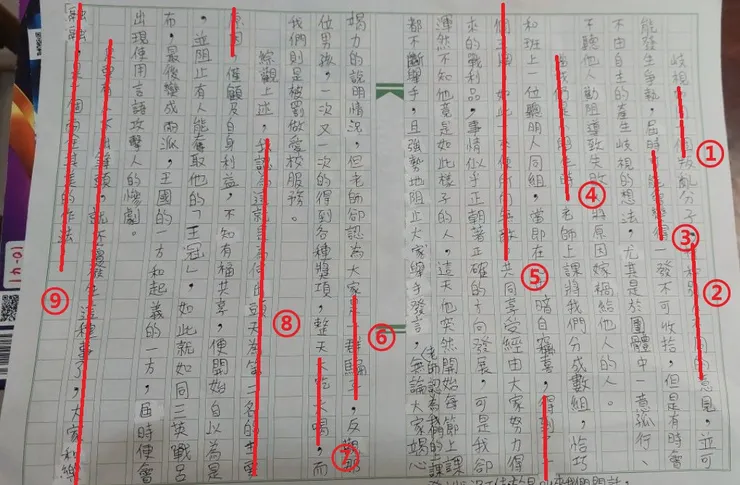 歧視 一個叛亂分子，不同的意見，並可
能發生爭執，屆時 一發不可收拾，但是有時會
不由自主的產生歧視的想法，尤其是於團體中一意孤行、
不聽他人勸阻導致失敗 將原因嫁禍給他人的人。
當我們是小學生時 老師上課將我們分成數組，恰巧
和班上一位聰明人同組，當即在 暗自竊喜，得到了一
個王國，如此一來便所向無敵，共同享受經由大家努力得
來的戰利品，事情似乎正朝著正確的方向發展，可是我卻
渾然不知他竟是如此樣子的人，這天他突然開始每節上課
都不斷舉手，且強勢地阻止大家舉手發言，無論大家竭心
竭力的說明情況，但老師卻認為大家是一群騙子，反觀那
位男孩，一次又一次的得到各種獎項，整天大吃大喝，而
我們則是被罰做愛校服務。
綜觀上述，我認為這就是為何 第二名的主要
原因，僅顧及自身利益，不知有福共享，便開始自以為是
，並阻止有人能奪取他的「王冠」，如此就如同三英戰呂
布，最後變成兩派，王國的一方和起義的一方，屆時便會
出現使用言語攻擊人的慘劇。
出鋒頭，就不會發生這種事了，大家和樂
融融，是一個兩全其美的作法
①
②
③
④
⑤
⑥
⑦
⑧
⑨
10-41